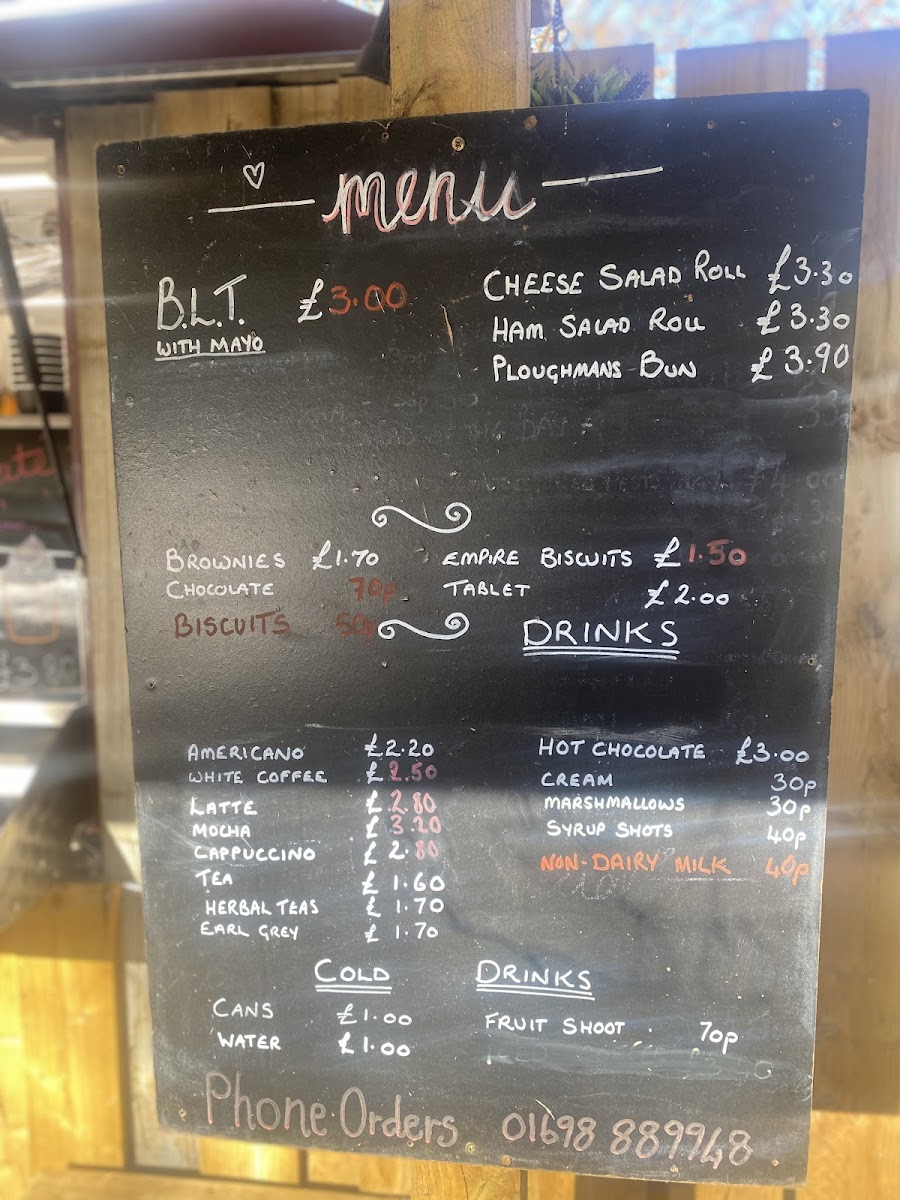 menu
B.L.T. £3.00
WITH MAYO
CHEESE SALAD ROLL £3.30
HAM SALAD ROLL £3.30
PLOUGHMANS BUN £3.90
BROWNIES £1.70
CHOCOLATE 70p
BISCUITS 50p
EMPIRE BISCUITS £1.50
TABLET £2.00
DRINKS
AMERICANO £2.20
WHITE COFFEE £2.50
LATTE £2.80
MOCHA £3.20
CAPPUCCINO £2.80
TEA £1.60
HERBAL TEAS £1.70
EARL GREY £1.70
HOT CHOCOLATE £3.00
CREAM 30p
MARSHMALLOWS 30p
SYRUP SHOTS 40p
NON-DAIRY MILK 40p
COLD DRINKS
CANS £1.00
WATER £1.00
FRUIT SHOOT 70p
Phone Orders 01698 889948